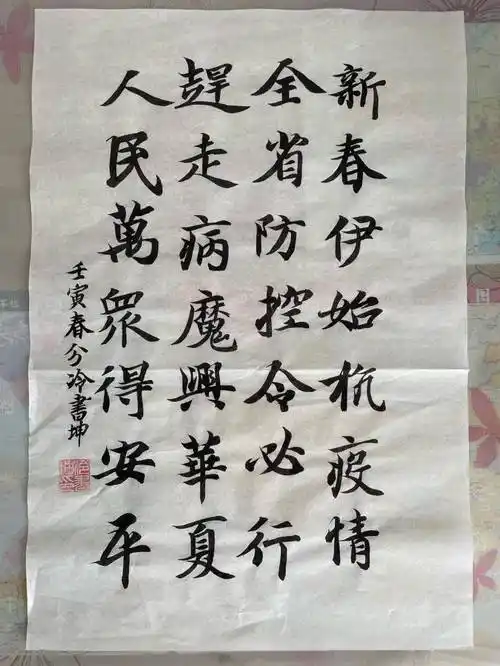 新春伊始杭疫情
全省防控令必行
趕走病魔興華夏
人民萬眾得安平
壬寅春兮冷書坤